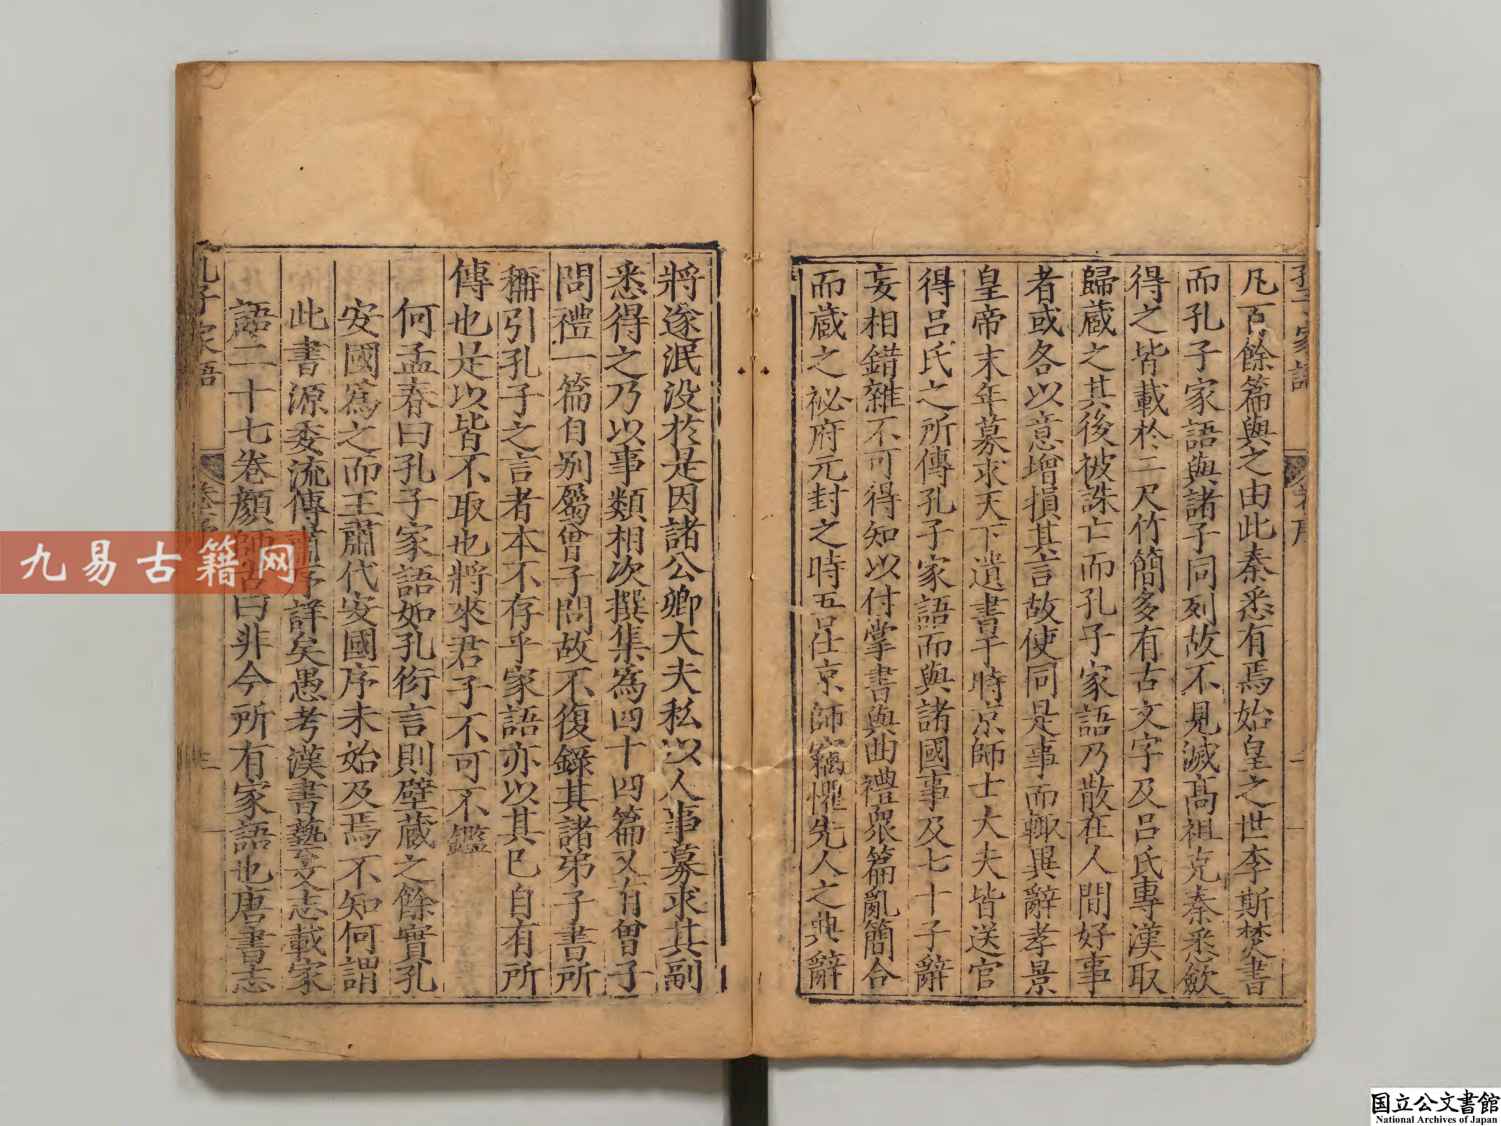 凡百餘篇與之由此秦悉有焉始皇之世李斯焚書
而孔子家語與諸子同列故不見滅高祖克秦悉歛
得之皆載於二尺竹簡多有古文字及呂氏專漢取
歸蔵之其後被誅亡而孔子家語乃散在人間好事
者或各以意增損其言故使同是事而輙異辭孝景
皇帝末年募求天下遺書于時京師士大夫皆送官
得呂氏之所傳孔子家語而與諸國事及七十子辭
妄相錯雜不可得知以付掌書與曲禮眾篇亂簡合
而蔵之祕府元封之時吾仕京師竊懼先人之典辭
將遂泯没於是因諸公卿大夫私以人事募求其副
悉得之乃以事類相次撰集爲四十四篇又有曾子
問禮一篇自别屬曾子問故不復錄其諸弟子書所
稱引孔子之言者本不存乎家語亦以其已自有所
傳也是以皆不取也將來君子不可不鑑
何孟春曰孔子家語如孔衍言則壁蔵之餘實孔
安國爲之而王肅代安國序未始及焉不知何謂
此書源委流傳肅序詳矣愚考漢書藝文志載家
語二十七卷顔師古曰非今所有家語也唐書志
孔子家語
九易古籍网
国立公文書館
National Archives of Japan